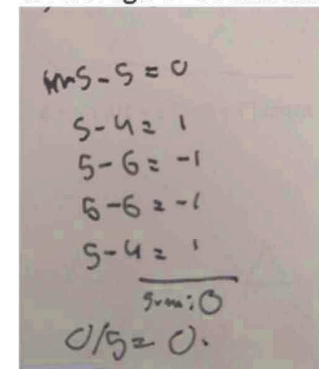 5-5=0
5-4=1
5-6=-1
5-6=-1
5-4=1
sum:0
0/5=0.